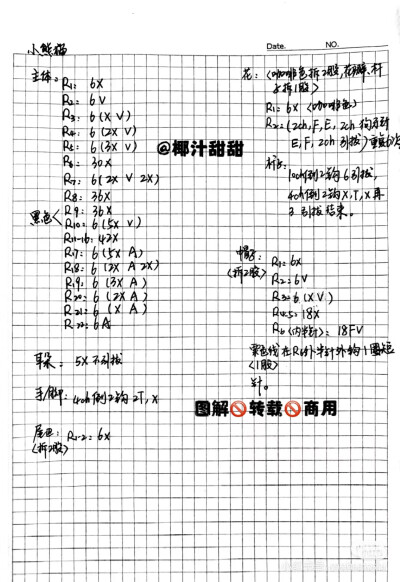 小熊猫
Date.
NO.
主体:
R1: 6X
R2: 6V
R3: 6(X V)
R4: 6(2X V)
R5: 6(3X V)
R6: 30X
R7: 6(2X V 2X)
R8: 36X
黑色< R9: 36X
R10: 6(5X V)
R11-16: 42X
R17: 6(5X A)
R18: 6(2X A 2X)
R19: 6(3X A)
R20: 6(2X A)
R21: 6(X A)
R22: 6A
耳朵: 5X 不引拔
手/脚: 4ch 倒2钩 2T, X
尾巴: R1-2: 6X
(拆2股)
花: <咖啡色拆2股, 花瓣、杆
拆1股>
R1: 6X <咖啡色>
R2: (2ch, F, E, 2ch
E, F, 2ch 引拔)
10ch 倒2钩 6引拔,
4ch 倒2钩 X, T, X 再
3引拔结束。
帽子: R1: 6X
(拆2股)
R2: 6V
R3: 6(X V)
R4-5: 18X
R6(内半针): 18FV
色线在R6外半针外钩1圈短
<1股>
针。
@椰汁甜甜
图解🚫转载🚫商用